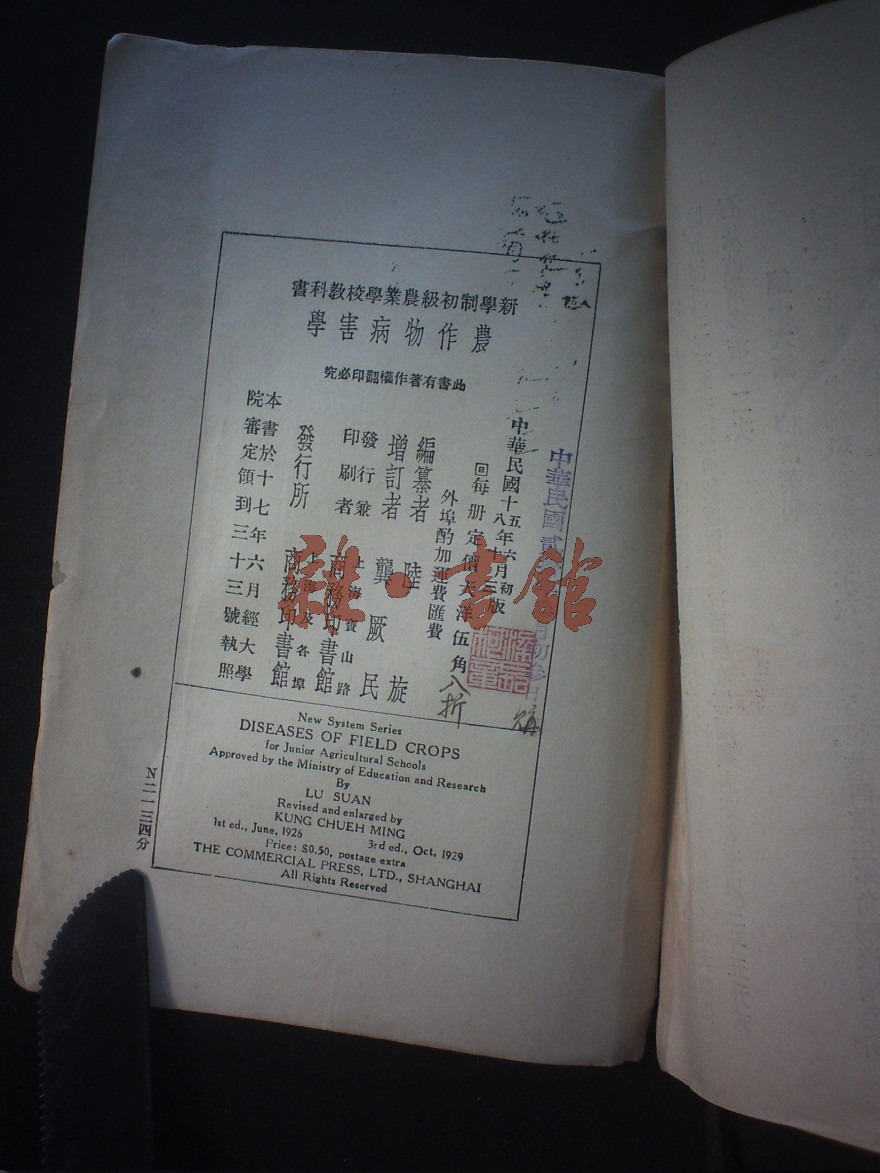 新學制初級農業學校教科書
農作物病害學
此書有著作權翻印必究
中華民國十五年六月初版
十八年十月三版
回每册定價大洋伍角
外埠酌加運費匯費
八折
編纂者 陸旋
增訂者 龔厥民
發行兼印刷者 上海寶山路 商務印書館
發行所 上海及各埠 商務印書館
本書於十七年六月經大學
院審定領到三十三號執照
中華民國
New System Series
DISEASES OF FIELD CROPS
for Junior Agricultural Schools
Approved by the Ministry of Education and Research
By
LU SUAN
Revised and enlarged by
KUNG CHUEH MING
1st ed., June, 1926 3rd ed., Oct, 1929
Price: $0.50, postage extra
THE COMMERCIAL PRESS, LTD., SHANGHAI
All Rights Reserved
N二一三四分
雜·書館